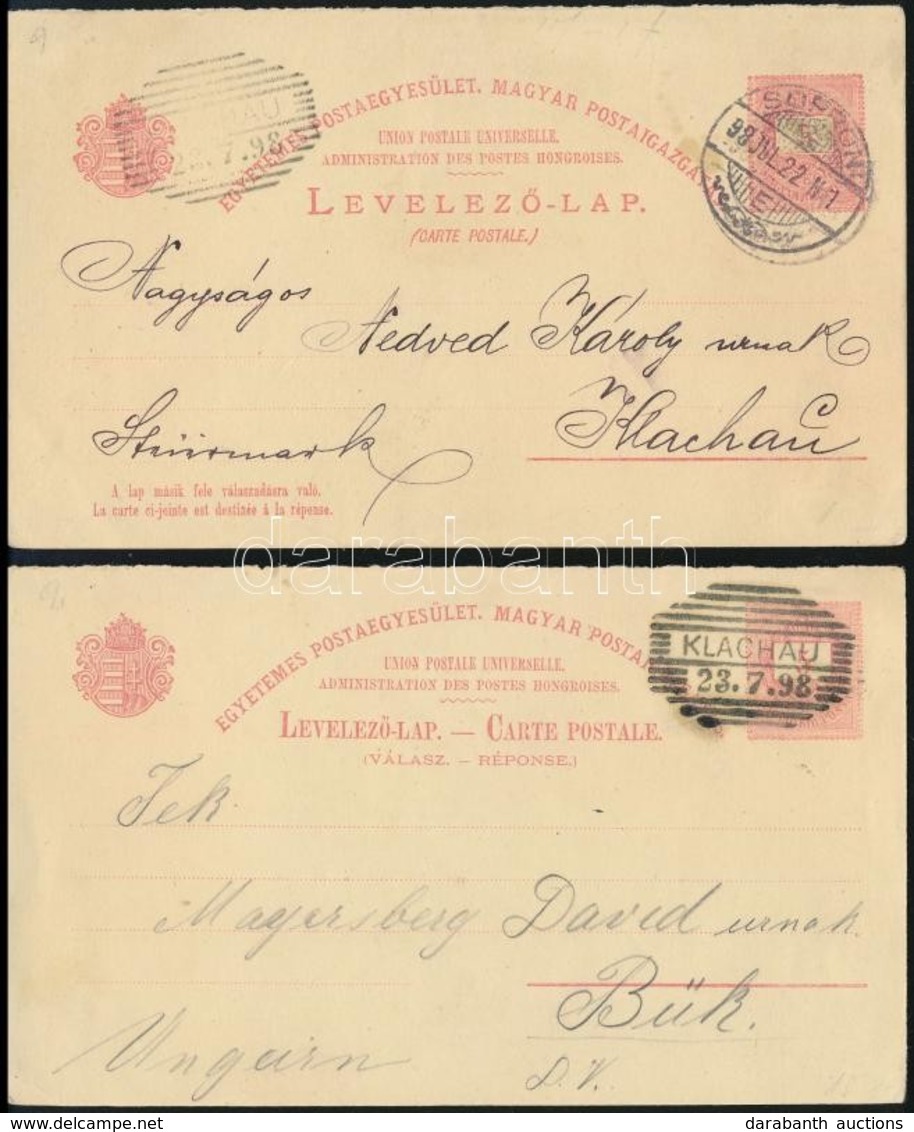 EGYETEMES POSTAEGYESÜLET. MAGYAR POSTAIGAZGA
UNION POSTALE UNIVERSELLE.
ADMINISTRATION DES POSTES HONGROISES.
LEVELEZŐ-LAP.
(CARTE POSTALE.)
23.7.98
SOPRON
98 JUL. 22 N7
E
Nagyságos
Nedved Károly urnak
Klachau
Steiirmark
A lap másik fele válaszadásra való.
La carte ci-jointe est destinée á la réponse.
darabanth
EGYETEMES POSTAEGYESÜLET. MAGYAR POSTA
UNION POSTALE UNIVERSELLE.
ADMINISTRATION DES POSTES HONGROISES.
LEVELEZŐ-LAP. — CARTE POSTALE.
(VÁLASZ. – RÉPONSE.)
KLACHAU
23.7.98
Tek
Mayersberg David urnak
Bük.
Ungarn
S. V.
darabanth auctions